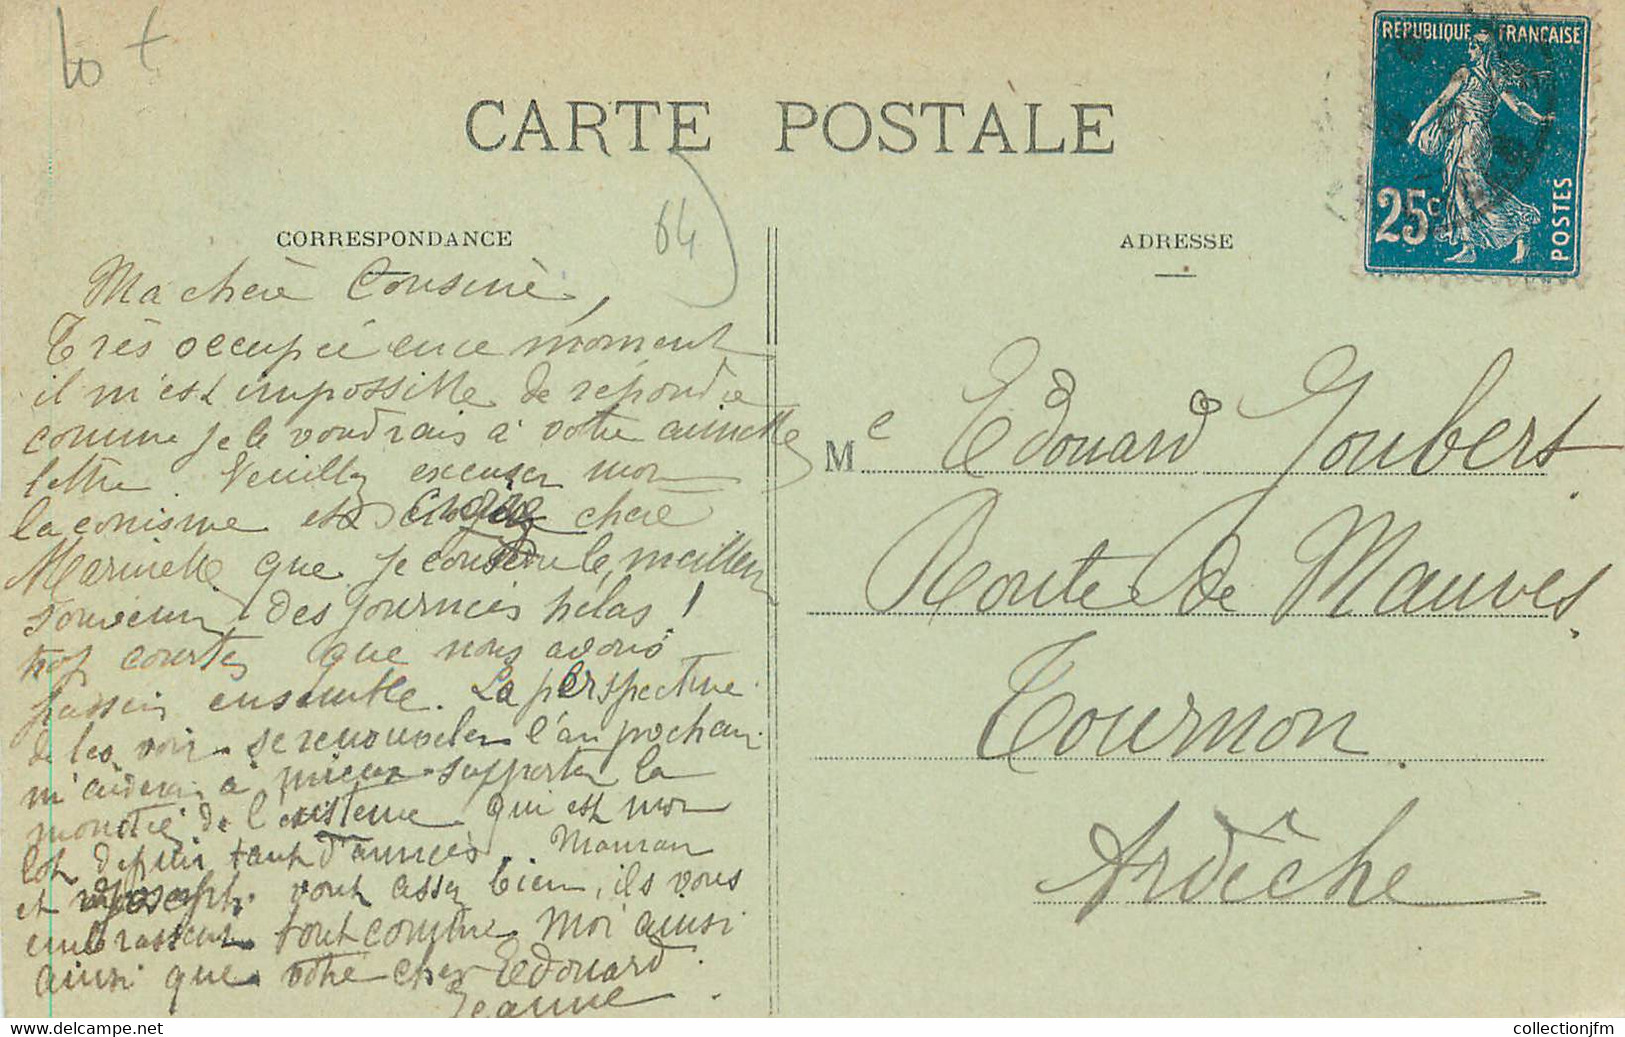 lo +
CARTE POSTALE
REPUBLIQUE FRANCAISE
25c
POSTES
64
CORRESPONDANCE
Ma chère Cousine,
Très occupée en ce moment
il m'est impossible de répondre
comme je le voudrais à votre aimable
lettre. Veuillez excuser mon
laconisme et croire chère
Marinette que je conserve le meilleur
souvenir des journées hélas !
trop courtes que nous avons
passées ensemble. La perspective
de les voir se renouveler l'an prochain
m'aidera à mieux supporter la
monotie de l'existence qui est mon
lot depuis tant d'années. Maman
et Joseph vont assez bien, ils vous
embrassent tout comme moi ainsi
ainsi que votre cher Edouard.
Jeanne
ADRESSE
Me Edouard Joubert
Route de Mauves.
Tournon
Ardèche
collectionjfm
www.delcampe.net